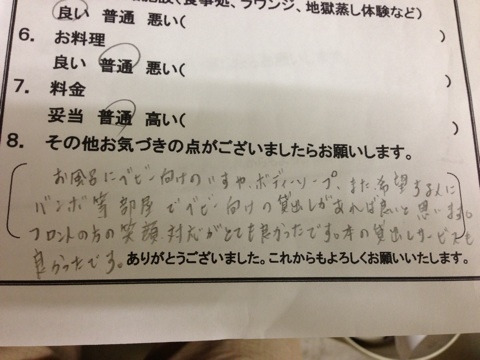 施設(食事処、ラウンジ、地獄蒸し体験など)
良い 普通 悪い(
6. お料理 )
良い 普通 悪い(
7. 料金 )
妥当 普通 高い(
8. その他お気づきの点がございましたらお願いします。 )
お風呂にベビー向けのいすや、ボディーソープ、また、希望する人に
バンボ等部屋でベビー向けの貸出しがあれば良いと思います。
フロントの方の笑顔、対応がとても良かったです。本の貸出しサービスも
良かったです。ありがとうございました。これからもよろしくお願いいたします。